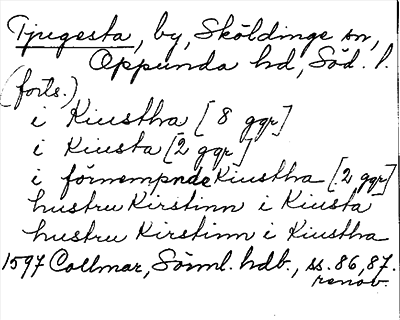 Tjugesta, by, Sköldinge sn,
Oppunda hd, Söd. l.
(forts.)
i Kiustha [8 ggr]
i Kiusta [2 ggr]
i förnempnde Kiustha [2 ggr]
hustru Kirstinn i Kiusta
hustru Kirstinn i Kiustha
1597 Collmar, Sörml. hdb., ss. 86, 87.
renov.